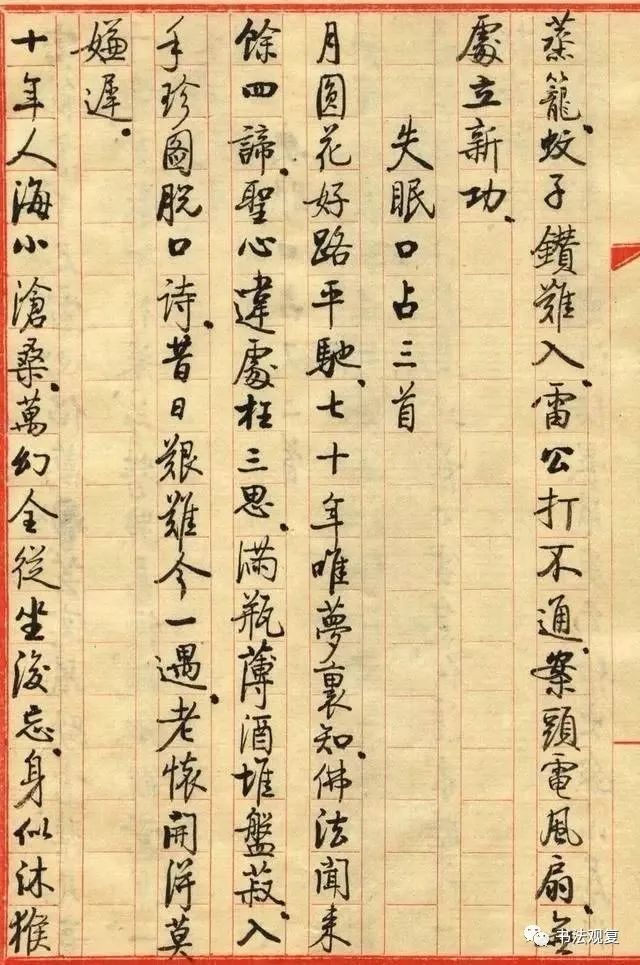 蒸籠、蚊子鑽難入、雷公打不通、案頭電風扇、
處立新功、
失眠口占三首
月圓花好路平馳、七十年唯夢裏知、佛法聞來
餘四諦、聖心違處枉三思、滿瓶薄酒堆盤菽、入
手珍圖脫口詩、昔日艱難今一遇、老懷開得莫
嫌遲、
十年人海小滄桑、萬幻全從坐後忘、身似沐猴
书法观复